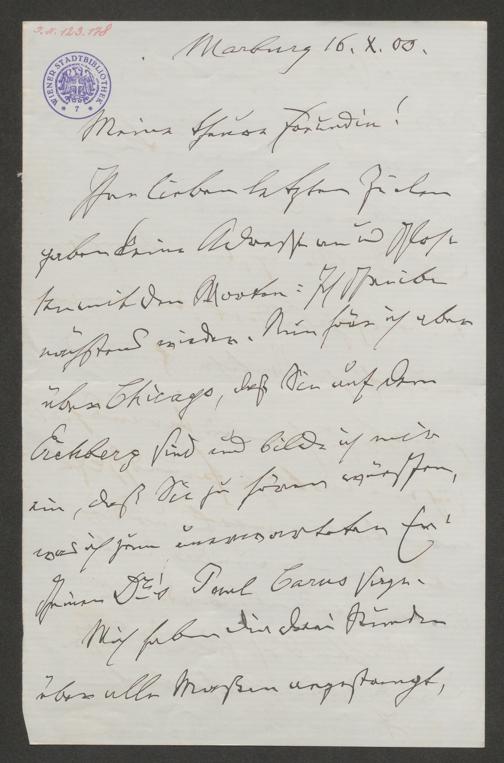 I.N. 123.178
WIENER STADTBIBLIOTHEK
7
Marburg 16. X. 00.
Meine theure Freundin!
Ihre lieben letzten Zeilen
gaben keine Adresse an und schlos-
sen mit den Worten: Ich schreibe
nächstens wieder. Nun höre ich eben
über Chicago, daß Sie auf dem
Eichberg sind und bilde ich mir
ein, daß Sie zu hören wünschen,
was ich zum unerwarteten Er-
scheinen Dr's Paul Carus sage.
Mich haben die drei Stunden
über alle Maßen angestrengt,